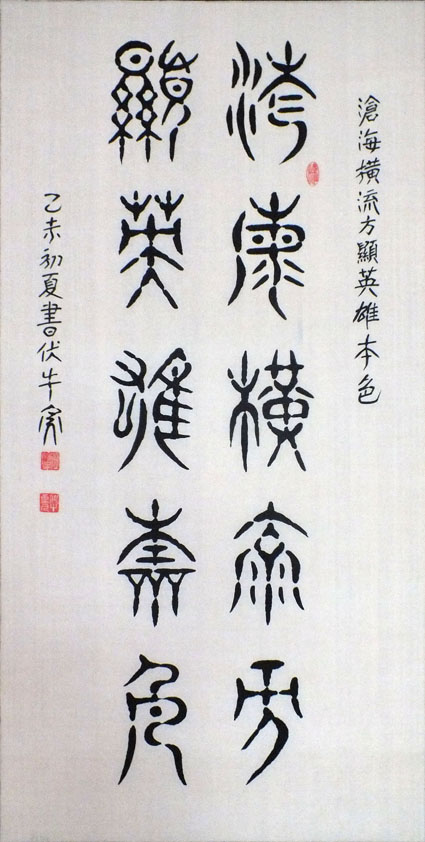 滄海橫流方顯英雄本色
滄海橫流方
顯英雄本色
乙未初夏書伏牛